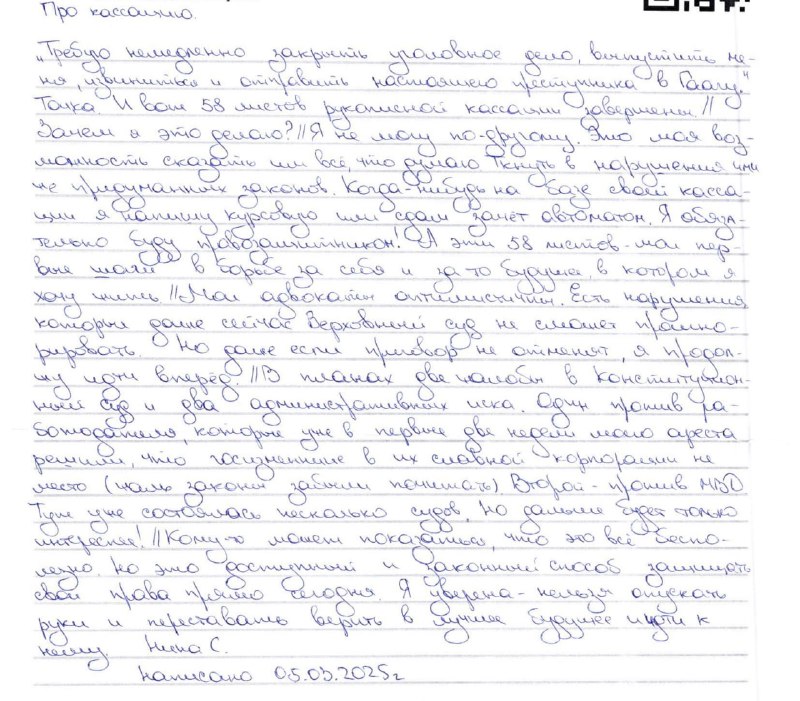 Про кассацию.
"Требую немедленно закрыть уголовное дело, выпустить ме-
ня, извиниться и отправить настоящего преступника в Гаагу."
Точка. И вот 58 листов рукописной кассации завершены.//
Зачем я это делаю?//Я не могу по-другому. Это моя воз-
можность сказать им всё, что думаю. Ткнуть в нарушения ими
же придуманных законов. Когда-нибудь на базе своей касса-
ции я напишу курсовую или сдам зачёт автоматом. Я обяза-
тельно буду правозащитником! А эти 58 листов - мои пер-
вые шаги в борьбе за себя и за то будущее, в котором я
хочу жить.//Мои адвокаты оптимистичны. Есть нарушения,
которые даже сейчас Верховный суд не сможет проигно-
рировать. Но даже если приговор не отменят, я продол-
жу идти вперёд.//В планах две жалобы в Конституцион-
ный суд и два административных иска. Один против ра-
ботодателя, которые уже в первые две недели моего ареста
решили, что госизменнице в их славной корпорации не
место (жаль законы забыли почитать) Второй - против МВД
Тут уже состоялось несколько судов, но дальше будет только
интереснее!//Кому-то может показаться, что это всё беспо-
лезно. Но это доступный и законный способ защищать
свои права прямо сегодня. Я уверена - нельзя опускать
руки и переставать верить в лучшее будущее и идти к
нему. С.
Написано 05.03.2025г